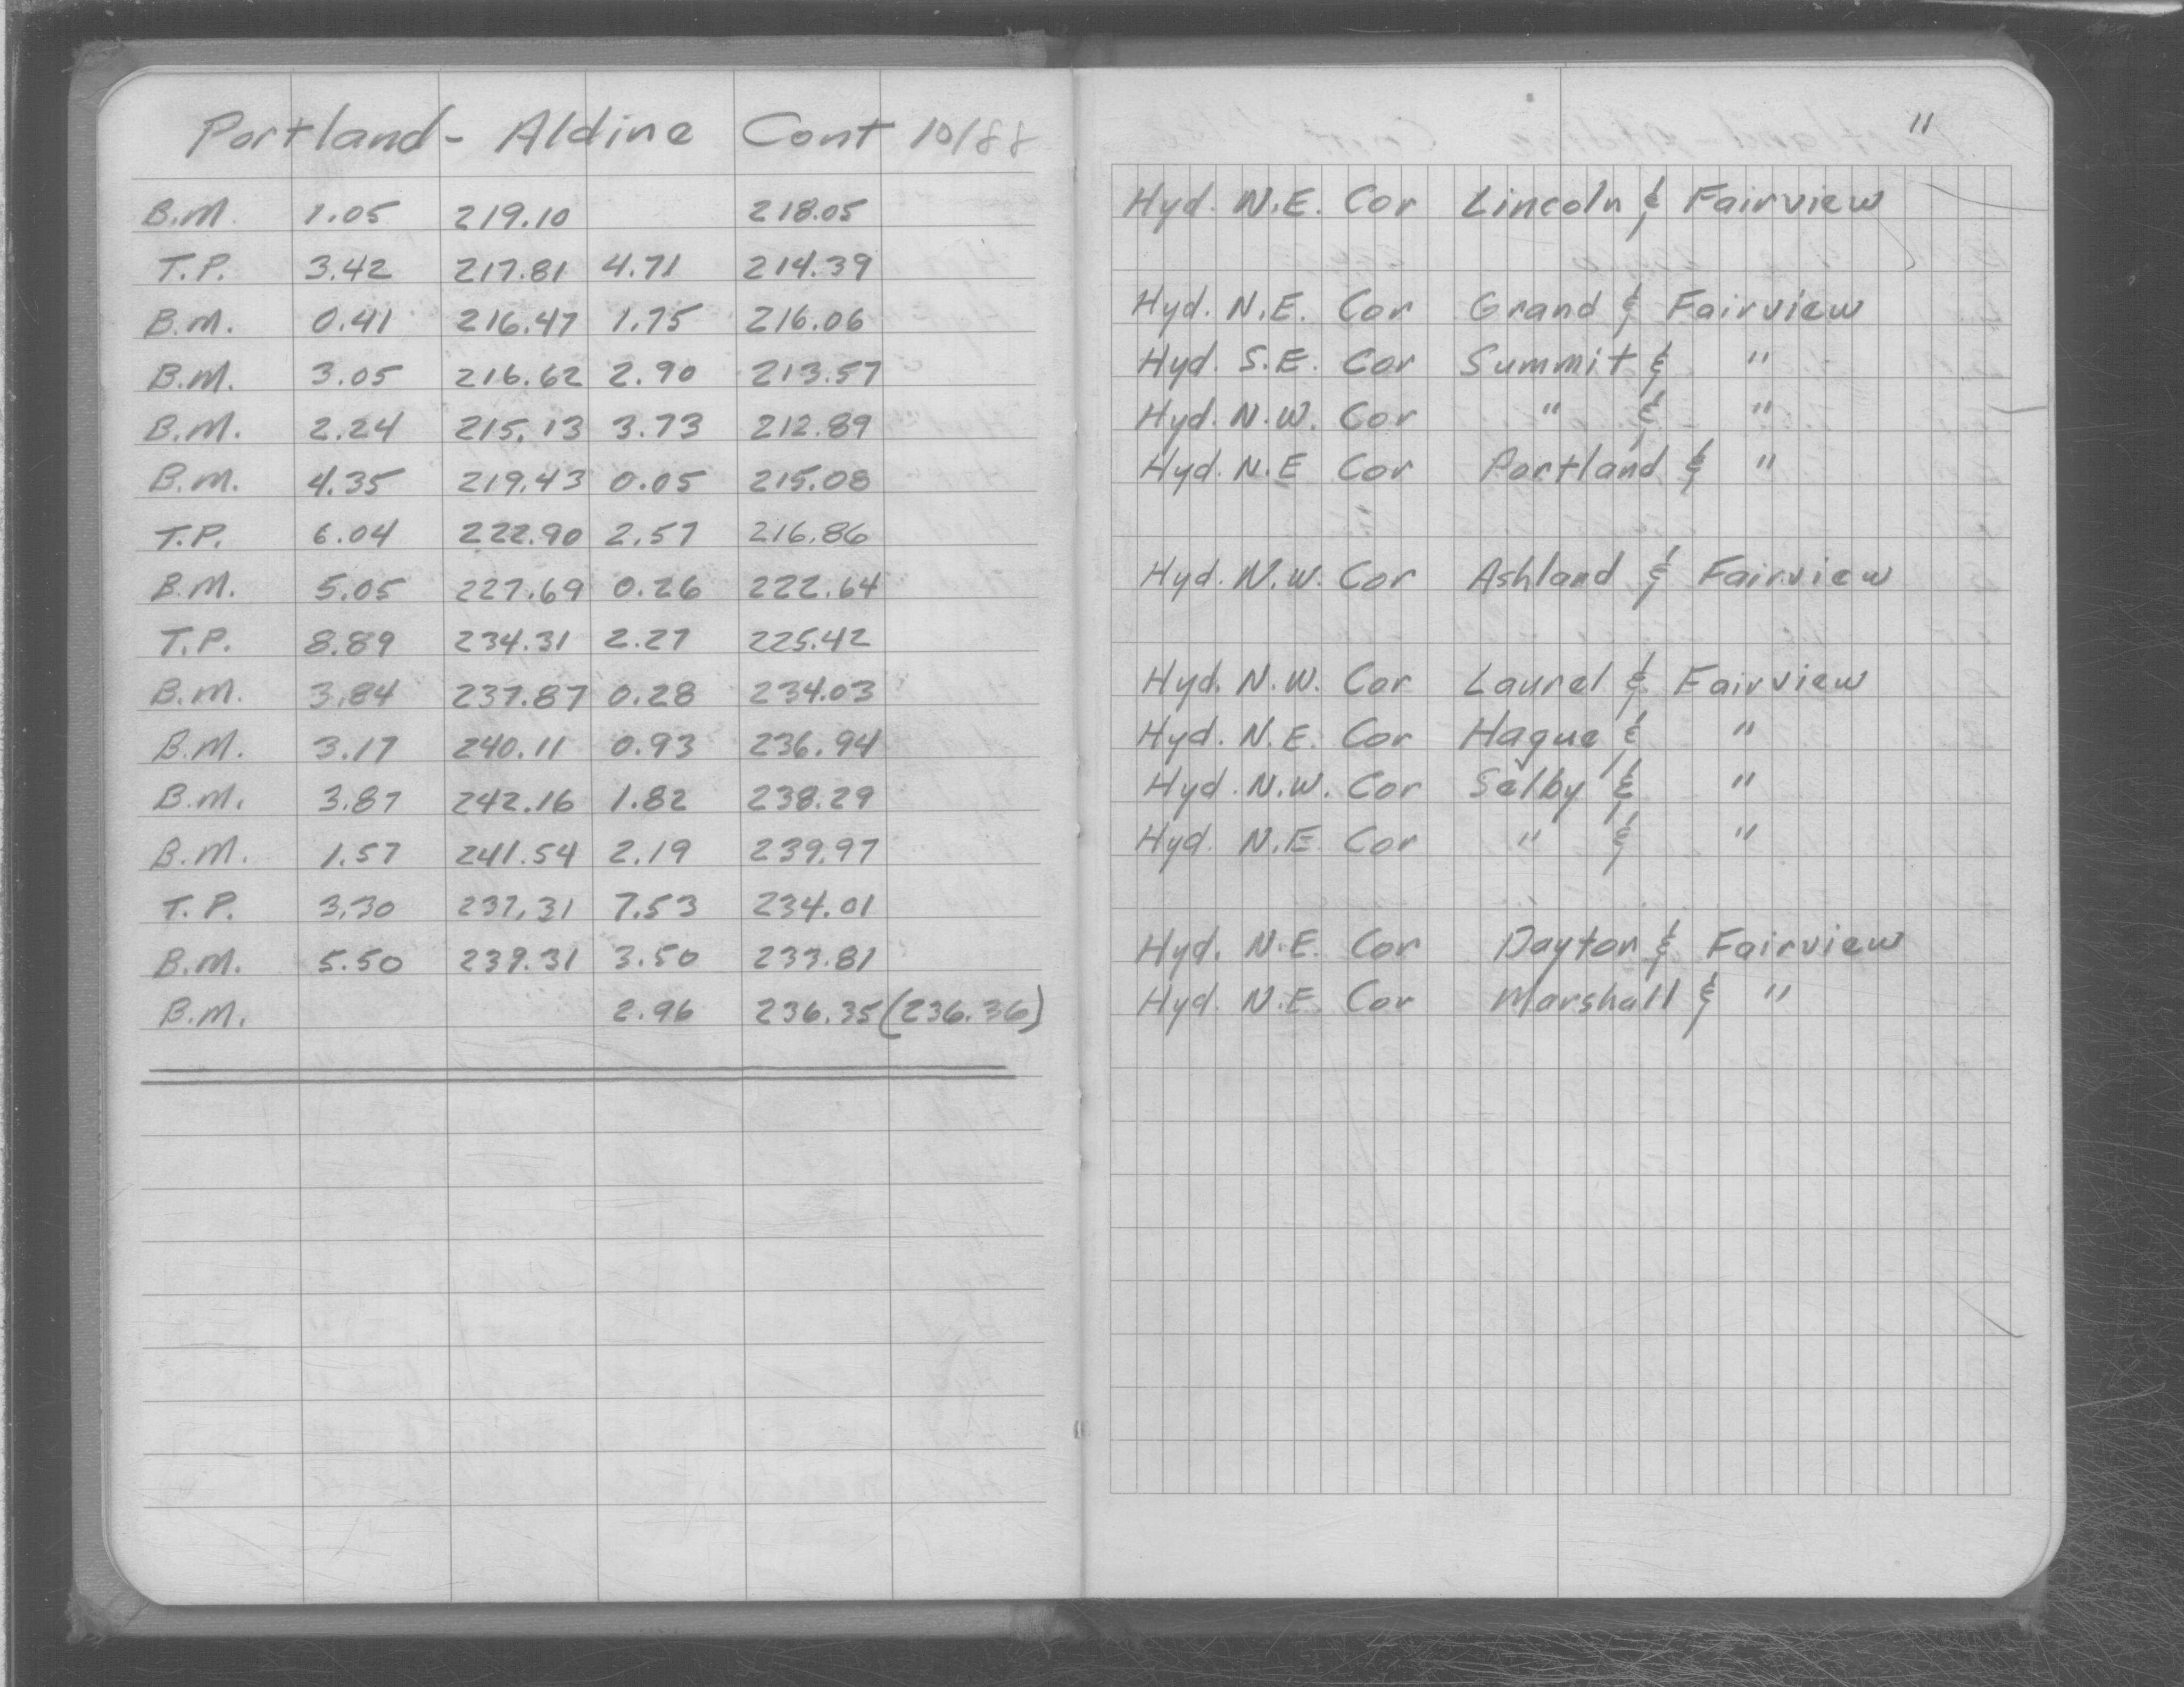 Portland - Aldine Cont 10/88
B.M. 1.05 219.10 218.05
T.P. 3.42 217.81 4.71 214.39
B.M. 0.41 216.47 1.75 216.06
B.M. 3.05 216.62 2.90 213.57
B.M. 2.24 215.13 3.73 212.89
B.M. 4.35 219.43 0.05 215.08
T.P. 6.04 222.90 2.57 216.86
B.M. 5.05 227.69 0.26 222.64
T.P. 8.89 234.31 2.27 225.42
B.M. 3.84 237.87 0.28 234.03
B.M. 3.17 240.11 0.93 236.94
B.M. 3.87 242.16 1.82 238.29
B.M. 1.57 241.54 2.19 239.97
T.P. 3.30 237.31 7.53 234.01
B.M. 5.50 239.31 3.50 233.81
B.M. 2.96 236.35 (236.36)
11
Hyd. N.E. Cor Lincoln & Fairview
Hyd. N.E. Cor Grand & Fairview
Hyd. S.E. Cor Summit & "
Hyd. N.W. Cor " & "
Hyd. N.E Cor Portland & "
Hyd. N.W. Cor Ashland & Fairview
Hyd. N.W. Cor Laurel & Fairview
Hyd. N.E. Cor Hague & "
Hyd. N.W. Cor Selby & "
Hyd. N.E. Cor " & "
Hyd. N.E. Cor Dayton & Fairview
Hyd. N.E. Cor Marshall & "